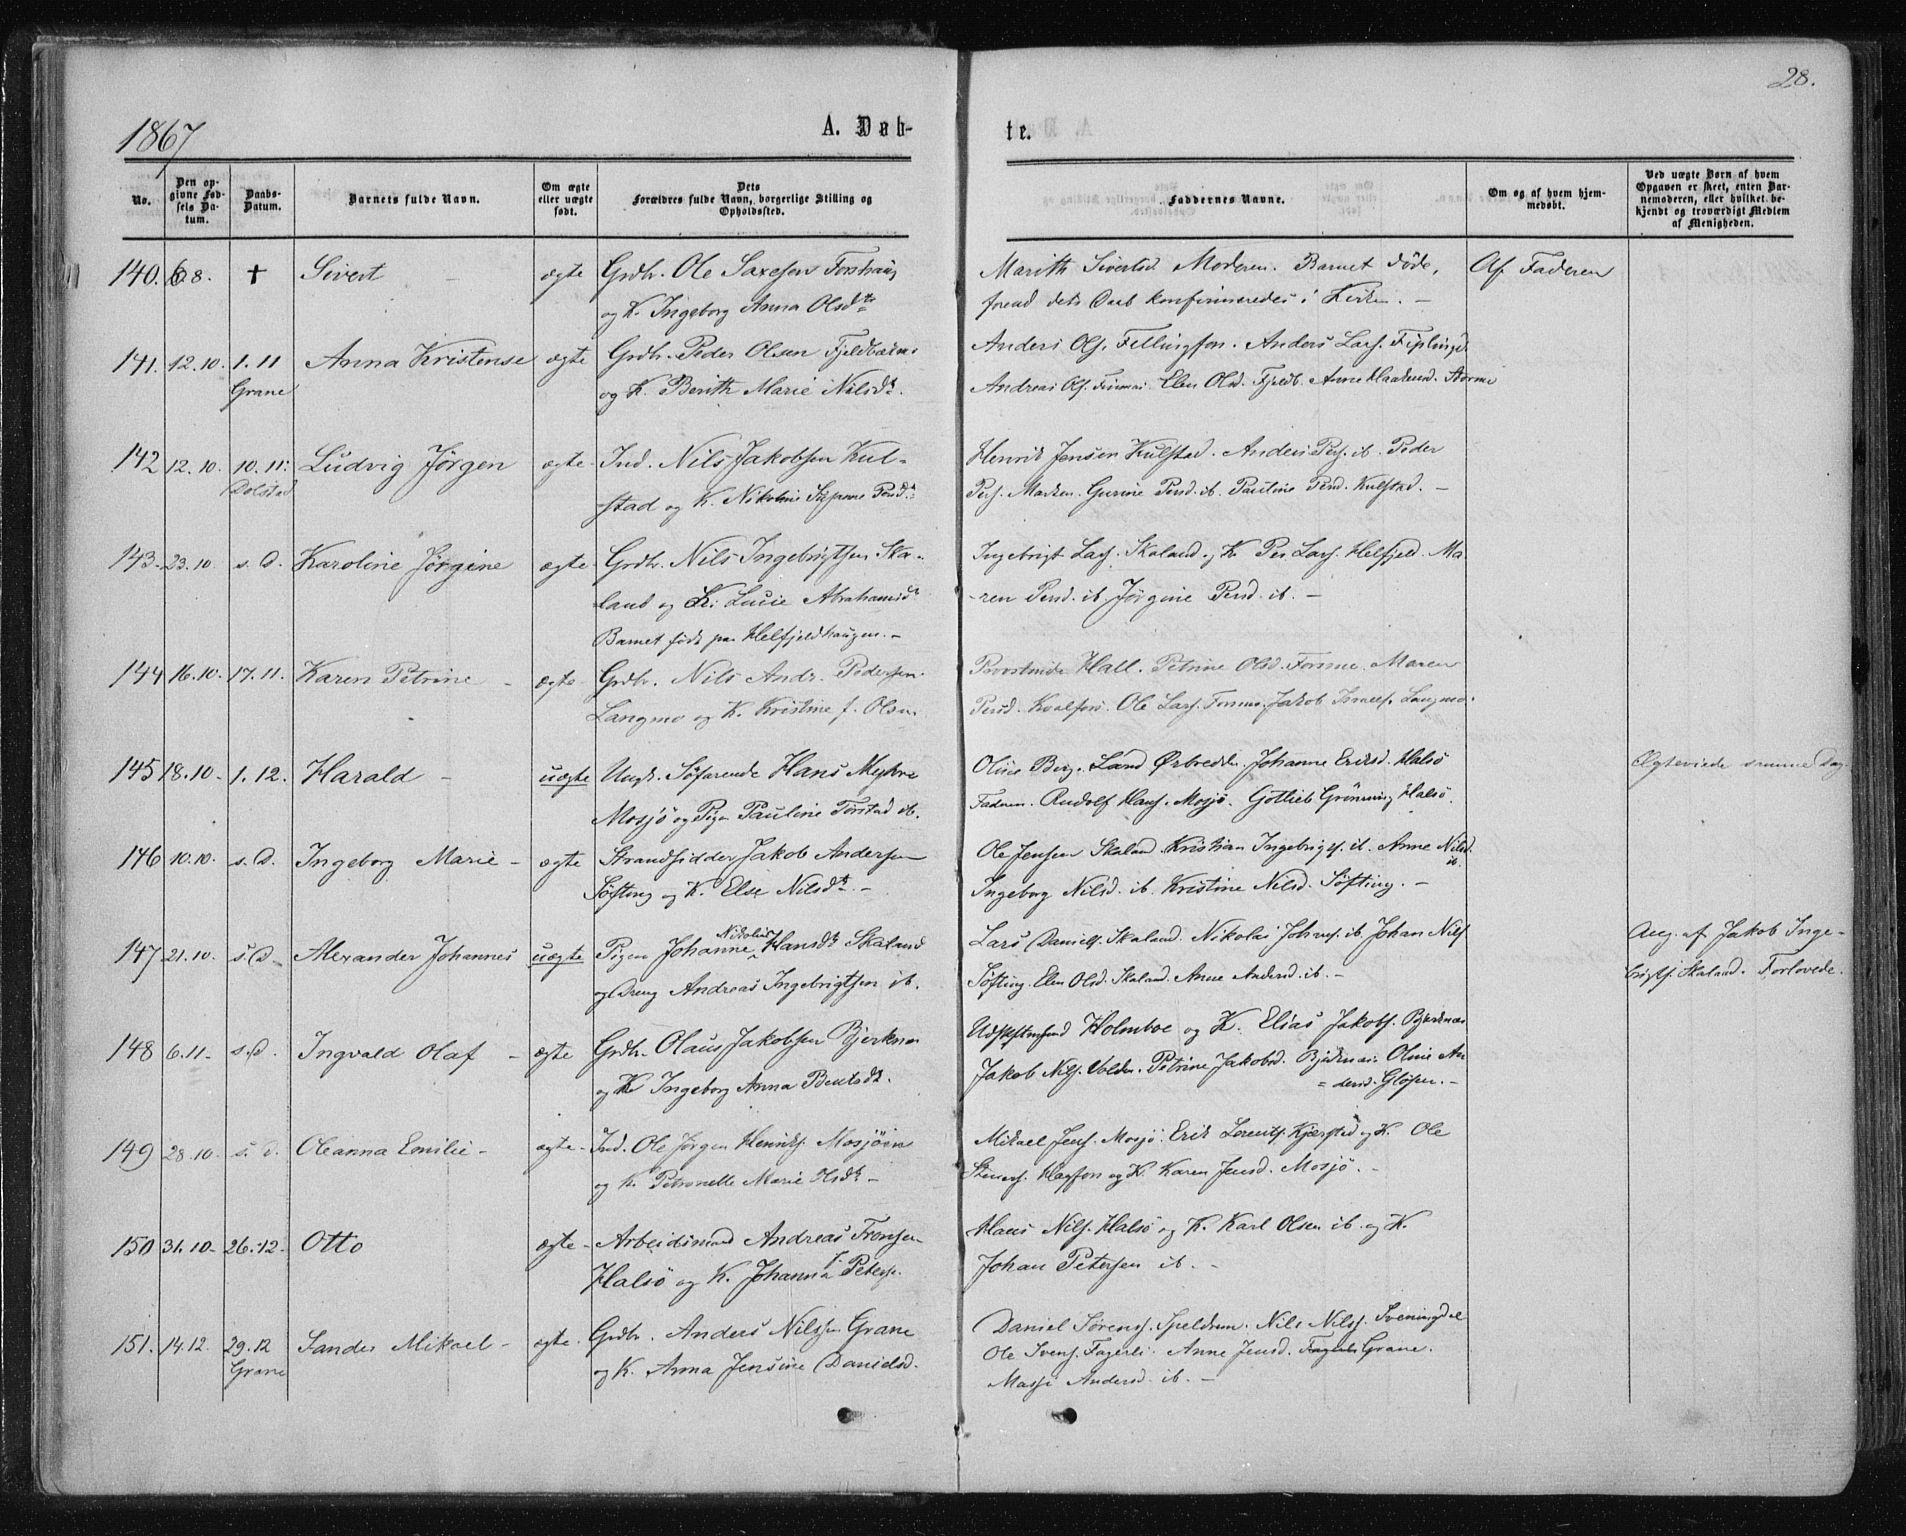 28.
1867
A. Døb-
te.
No.
Den op-
givne Fød-
sels Da-
tum.
Daabs-
Datum.
Barnets fulde Navn.
Om ægte
eller uægte
født.
Dets
Forældres fulde Navn, borgerlige Stilling og
Opholdssted.
Faddernes Navne.
Om og af hvem hjem-
medøbt.
Ved uægte Børn af hvem
Opgaven er skeet, enten Bar-
nemoderen, eller hvilket be-
kjendt og troværdigt Medlem
af Menigheden.
140. 8. † Sivert ægte Grdbr. Ole Saxesen Forshaug Marith Sivertsd Moderen. Barnet døde, Af Faderen
og K. Ingeborg Anna Olsdtr forend dets Daab konfirmeredes i Kirken. –
141. 12.10. 1.11 Anna Kristense ægte Grdbr. Peder Olsen Anders Ols. Fellingfors. Anders Lars. Fiplingd.
Grane og K. Berith Marie Nilsdt. Andreas Ols. Elen Olsd. Fjeldb. Anne Haakensd. Storme
142 12.10. 10.11. Ludvig Jørgen ægte Ind. Nils Jakobsen Kul- Henrik Jensen Kulstad. Anders Pers. ib. Peder
Dolstad stad og K. Nikoline Persdt. Pers. Marken. Gurine Persd. ib. Pauline Persd. Kulstad. –
143. 23.10 s. D. Karoline Jørgine ægte Grdbr. Nils Ingebrigtsen Ska- Ingebrigt Lars. Skaland og K. Per Lars. Helfjeld. Ma
land og K. Lucie Abrahamsdt -ren Persd. ib. Jørgine Persd. ib. –
Barnet født paa Helfjeldhaugen. –
144 16.10. 17.11. Karen Petrine – ægte Grdbr. Nils Andr. Pedersen Hall. Petrine Olsd. Forsmo. Maren
Langmo og K. Kristine f. Olsen Persd. Kvalfors. Ole Lars. Forsmo. Jakob Langmo.
145 18.10 – 1.12. Harald – uægte Ungk. Søfarende Hans Oline Berg. Johanne Eriksd. Halsø Ægteviede samme Dag
Mosjø og Pigen Pauline Forstad ib. Faderen. Rudolf Hans. Mosjø. Gotlieb Grønning Halsø.
146 10.10. s. D. Ingeborg Marie – ægte Strandsidder Jakob Andersen Ole Jensen Skaland. Kristian Ingebrigs. ib. Anne Nilsd.
ib.
Søfting og K. Else Nilsdt. – Ingeborg Nilsd. ib. Kristine Nilsd. Søfting. –
147 21.10. s. D – Alexander Johannes uægte Pigen Johanne Nikoline Hansdt. Skaland Lars Daniels. Skaland. Nikolai Johns. ib. Johan Nils Ang. af Jakob Inge-
og Dreng Andreas Ingebrigtsen ib. Søfting. Elen Olsd. Skaland. Anne Andersd. ib. – brigts. Skaland. Forlovede.
148 6.11 – s. D. Ingvald Olaf – ægte Grdbr. Olaus Jakobsen Bjerknes Holmboe og K. Elias Jakobs. Bjerknes
og K Ingeborg Anna Bentsdt. Jakob Nils. Volden. Petrine Jakobsd. Bjerknes. Oline An
= dersd. –
149 28.10 – s. D. Oleanna Emilie – ægte – Ind. Ole Jørgen Henriks. Mosjøen Mikael Jens. Mosjø. Erik Lorents. Kjærstad og K. Ole
og K. Petronelle Marie Olsdt – Steners. Hagfors og K. Karen Jensd. Mosjø. –
150 31.10 – 26.12. Otto ægte – Arbeidsmand Andreas Tronsen Hans Nils. Halsø og K. Karl Olsen ib. og K.
Halsø og K. Johanna f. Peters. Johan Petersen ib. –
151. 14.12. 29.12 Sander Mikael – ægte Grdbr. Anders Nilssen Grane Daniel Sørens. Speldrem. Nils Nils. Sveningdal
Grane og K. Anna Jensine Danielsd. Ole Svens. Fagerli. Anne Jensd. Grane.
Masji Andersd. ib. –